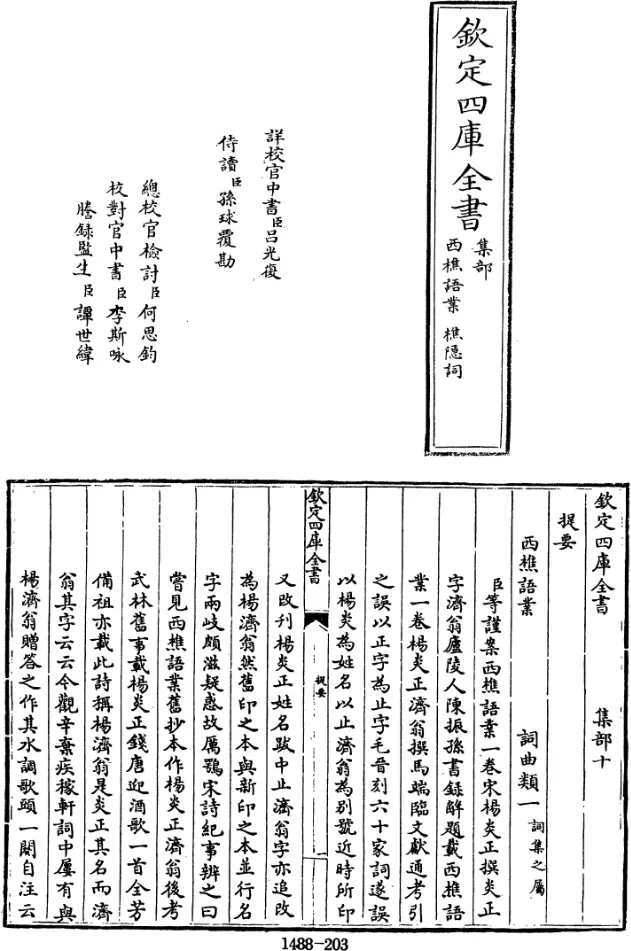 欽定四庫全書
集部
西樵語業 樵隱詞
詳校官中書臣呂光復
侍讀臣孫球覆勘
總校官檢討臣何思鈞
校對官中書臣李斯咏
謄録監生臣譚世緯
欽定四庫全書 集部十
提要
西樵語業 詞曲類一詞集之屬
臣等謹案西樵語業一卷宋楊炎正撰炎正
字濟翁廬陵人陳振孫書録解題載西樵語
業一卷楊炎正濟翁撰馬端臨文獻通考引
之誤以正字為止字毛晉刻六十家詞遂誤
以楊炎為姓名以止濟翁為别號近時所印
欽定四庫全書
提要
又改刊楊炎正姓名跋中止濟翁字亦追改
為楊濟翁然舊印之本與新印之本並行名
字兩歧頗滋疑惑故厲鶚宋詩紀事辨之曰
嘗見西樵語業舊抄本作楊炎正濟翁後考
武林舊事載楊炎正錢唐迎酒歌一首全芳
備祖亦載此詩稱楊濟翁是炎正其名而濟
翁其字云云今觀辛棄疾稼軒詞中屢有與
楊濟翁贈答之作其水調歌頭一闋自注云
1488-203